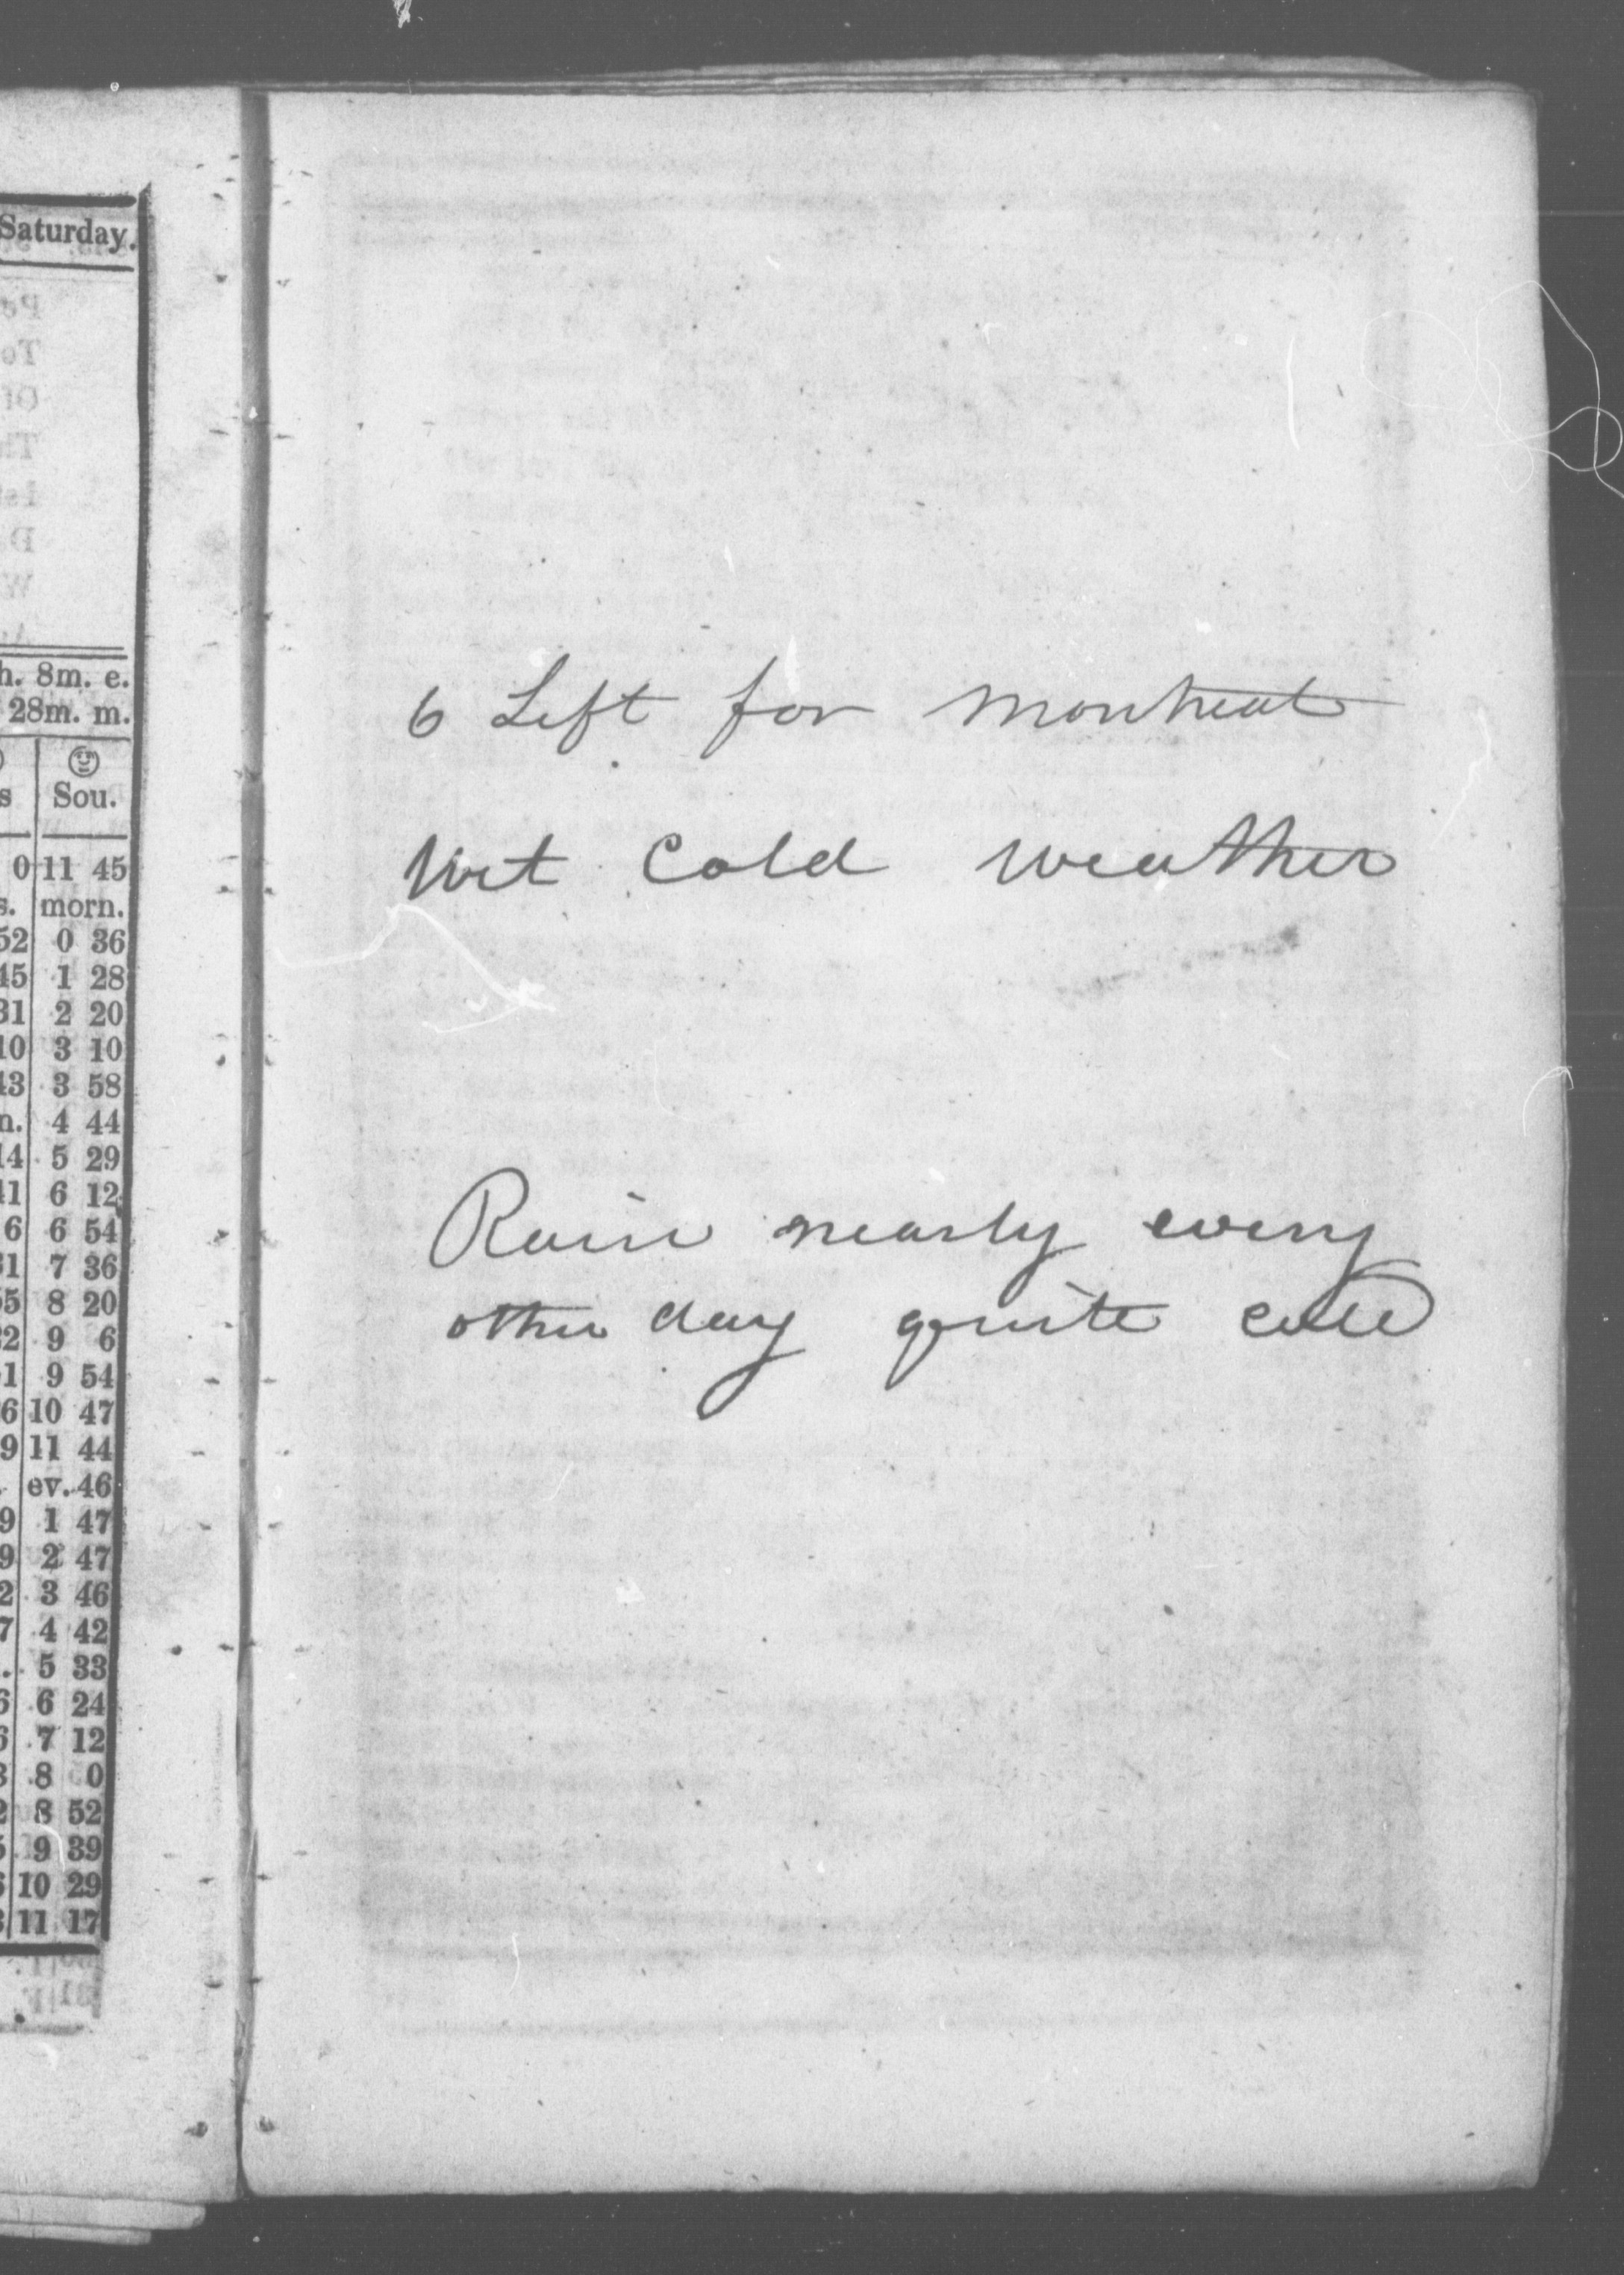 Saturday.
h. 8m. e.
28m. m.
s Sou.
0 11 45
s. morn.
52 0 36
45 1 28
31 2 20
10 3 10
43 3 58
n. 4 44
14 5 29
41 6 12
6 6 54
31 7 36
55 8 20
22 9 6
1 9 54
6 10 47
9 11 44
ev. 46
9 1 47
9 2 47
2 3 46
7 4 42
. 5 33
6 6 24
6 7 12
3 8 0
2 8 52
5 9 39
6 10 29
3 11 17
6 Left for Montreal
Wet Cold weather
Rain nearly every
other day quite cold